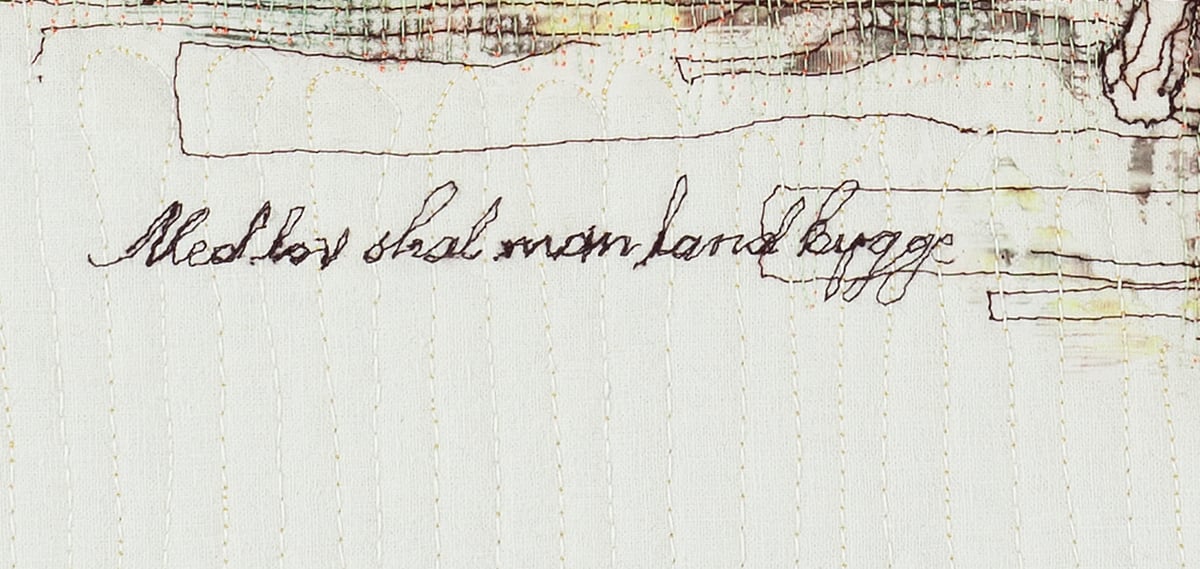 Med lov skal man land bygge